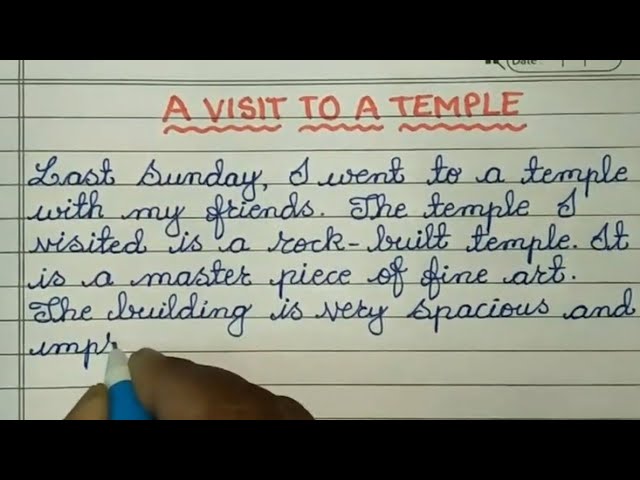 Date
A VISIT TO A TEMPLE
Last Sunday, I went to a temple
with my friends. The temple I
visited is a rock-built temple. It
is a master piece of fine art.
The building is very spacious and
imp